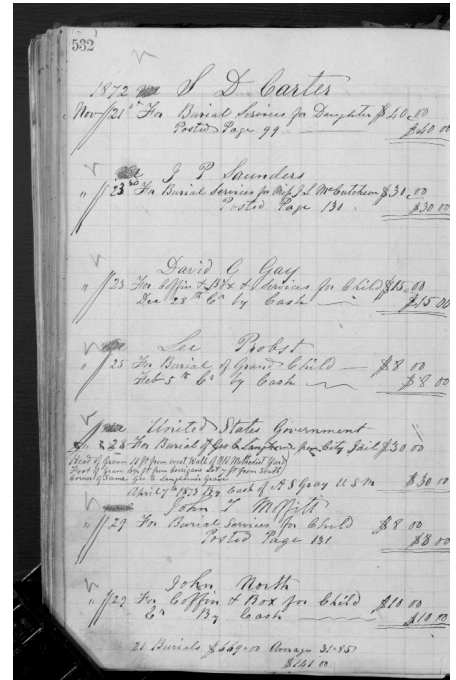 532
1872 S D Carter
Nov 21st For Burial Services for Daughter $40.00
Posted Page 99 $40 00
J P Saunders
" 23rd For Burial Services for J S McCutcheon $30.00
Posted Page 130 $30 00
David G Gay
" 23 For Coffin & Box & Services for Child $15.00
Dec 28th Cr by Cash $15 00
Lee Probst
" 25 For Burial of Grand Child $8 00
Feb 5th Cr by Cash $8 00
United States Government
" 28 For Burial of Geo C from City Jail $30 00
Head of Grave 11 ft from West Wall of Old Methodist Yard
Foot of Grave ft from Lot ft from South
Corner of Same Geo C Grave
April 7th 1873 By Cash of A S Gray U S M $30 00
John T Moffitt
" 29 For Burial Services for Child $8 00
Posted Page 131 $8 00
John North
" 29 For Coffin & Box for Child $10 00
Cr By Cash $10 00
21 Burials $669.00 Average 31.85
$141 00